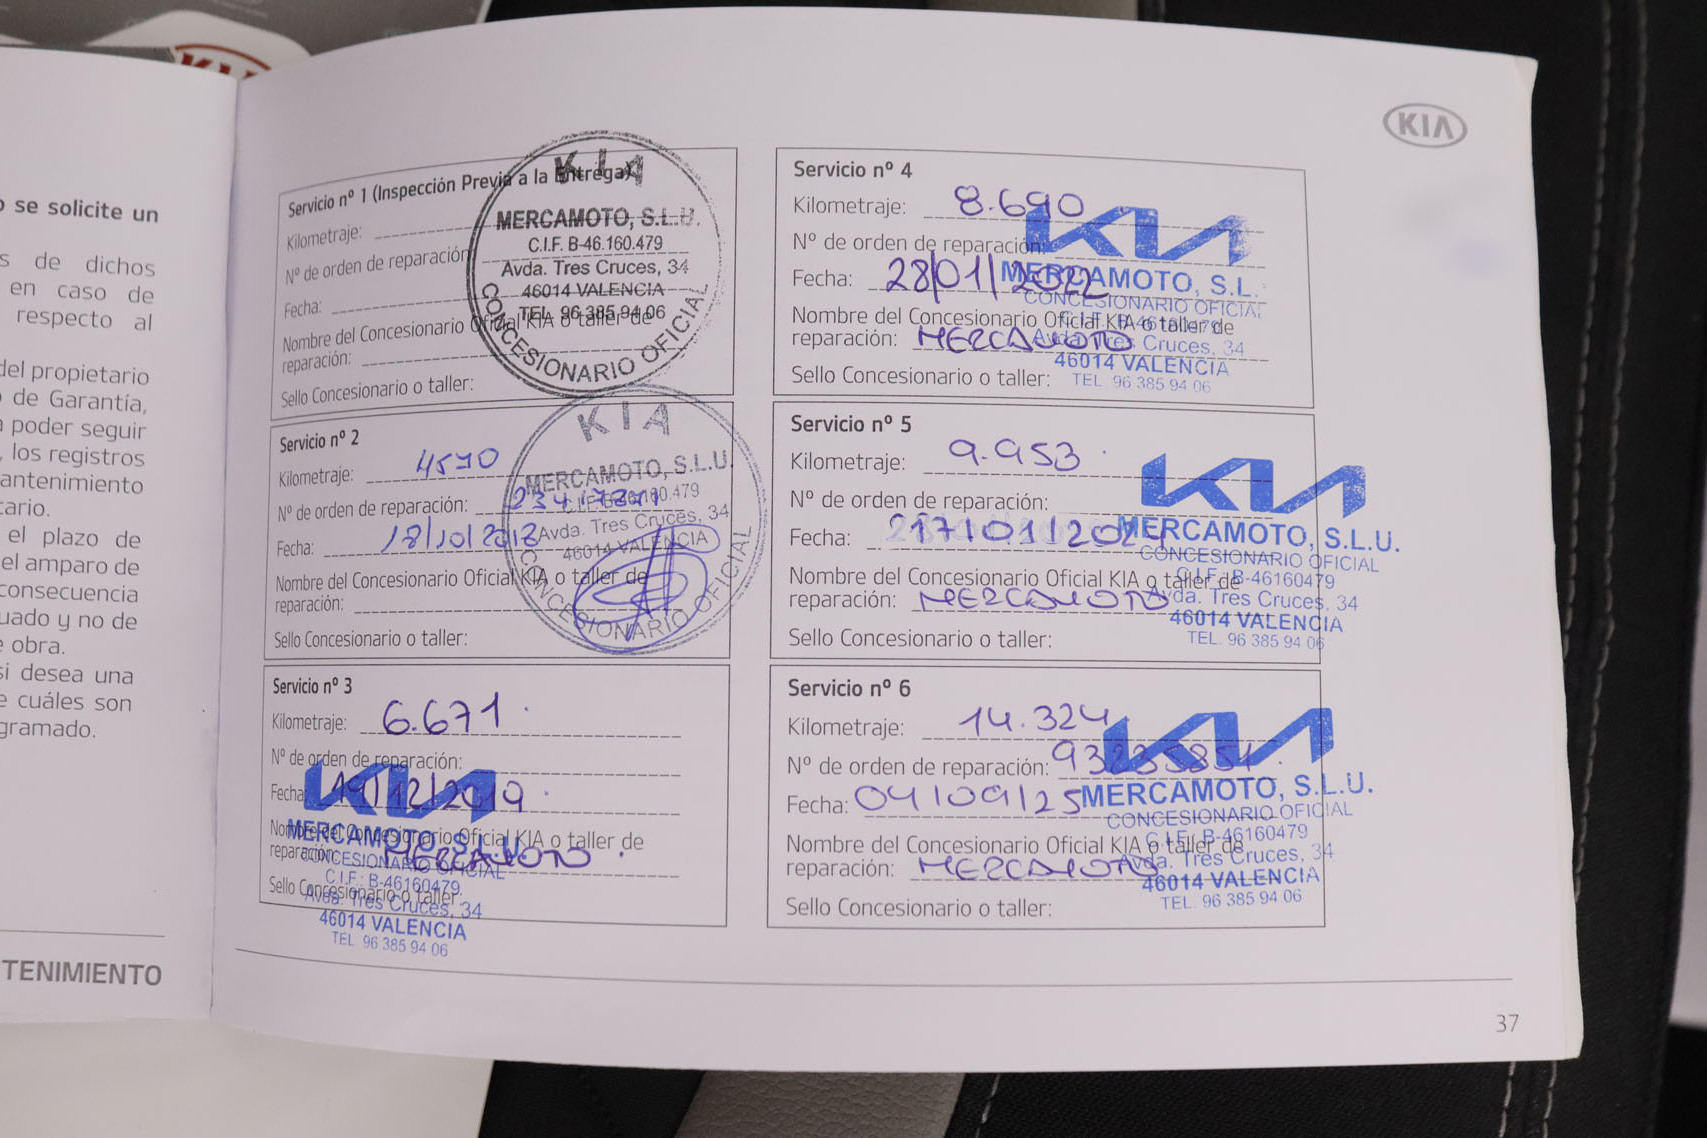 KIA
o se solicite un
s de dichos
en caso de
respecto al
del propietario
de Garantía,
a poder seguir
, los registros
antenimiento
tario.
el plazo de
el amparo de
consecuencia
uado y no de
e obra.
si desea una
e cuáles son
gramado.
TENIMIENTO
KIA
Servicio nº 1 (Inspección Previa a la Entrega)
Kilometraje:
Nº de orden de reparación
Fecha:
Nombre del Concesionario Oficial KIA o taller de
reparación:
Sello Concesionario o taller:
KIA
MERCAMOTO, S.L.U.
C.I.F. B-46.160.479
Avda. Tres Cruces, 34
46014 VALENCIA
TEL. 96 385 94 06
CONCESIONARIO OFICIAL
Servicio nº 2
Kilometraje: 4570
Nº de orden de reparación:
Fecha: 18/10/2018
Nombre del Concesionario Oficial KIA o taller de
reparación:
Sello Concesionario o taller:
KIA
MERCAMOTO, S.L.U.
C.I.F. B-46.160.479
Avda. Tres Cruces, 34
46014 VALENCIA
CONCESIONARIO OFICIAL
Servicio nº 3
Kilometraje: 6.671
Nº de orden de reparación:
Fecha 19/12/2019
Nombre del Concesionario Oficial KIA o taller de
reparación: MERCAMOTO
Sello Concesionario o taller:
KIA
MERCAMOTO, S.L.U.
CONCESIONARIO OFICIAL
C.I.F.: B-46160479
Avda. Tres Cruces, 34
46014 VALENCIA
TEL. 96 385 94 06
Servicio nº 4
Kilometraje: 8.690
Nº de orden de reparación:
Fecha: 28/01/2022
Nombre del Concesionario Oficial KIA o taller de
reparación: MERCAMOTO
Sello Concesionario o taller:
KIA
MERCAMOTO, S.L.
CONCESIONARIO OFICIAL
C.I.F. B-46160479
Avda. Tres Cruces, 34
46014 VALENCIA
TEL. 96 385 94 06
Servicio nº 5
Kilometraje: 9.953
Nº de orden de reparación:
Fecha:
Nombre del Concesionario Oficial KIA o taller de
reparación: MERCAMOTO
Sello Concesionario o taller:
KIA
MERCAMOTO, S.L.U.
CONCESIONARIO OFICIAL
C.I.F. B-46160479
Avda. Tres Cruces, 34
46014 VALENCIA
TEL. 96 385 94 06
Servicio nº 6
Kilometraje: 14.324
Nº de orden de reparación: 93235851
Fecha: 04/09/25
Nombre del Concesionario Oficial KIA o taller de
reparación: MERCAMOTO
Sello Concesionario o taller:
KIA
MERCAMOTO, S.L.U.
CONCESIONARIO OFICIAL
C.I.F. B-46160479
Avda. Tres Cruces, 34
46014 VALENCIA
TEL. 96 385 94 06
37